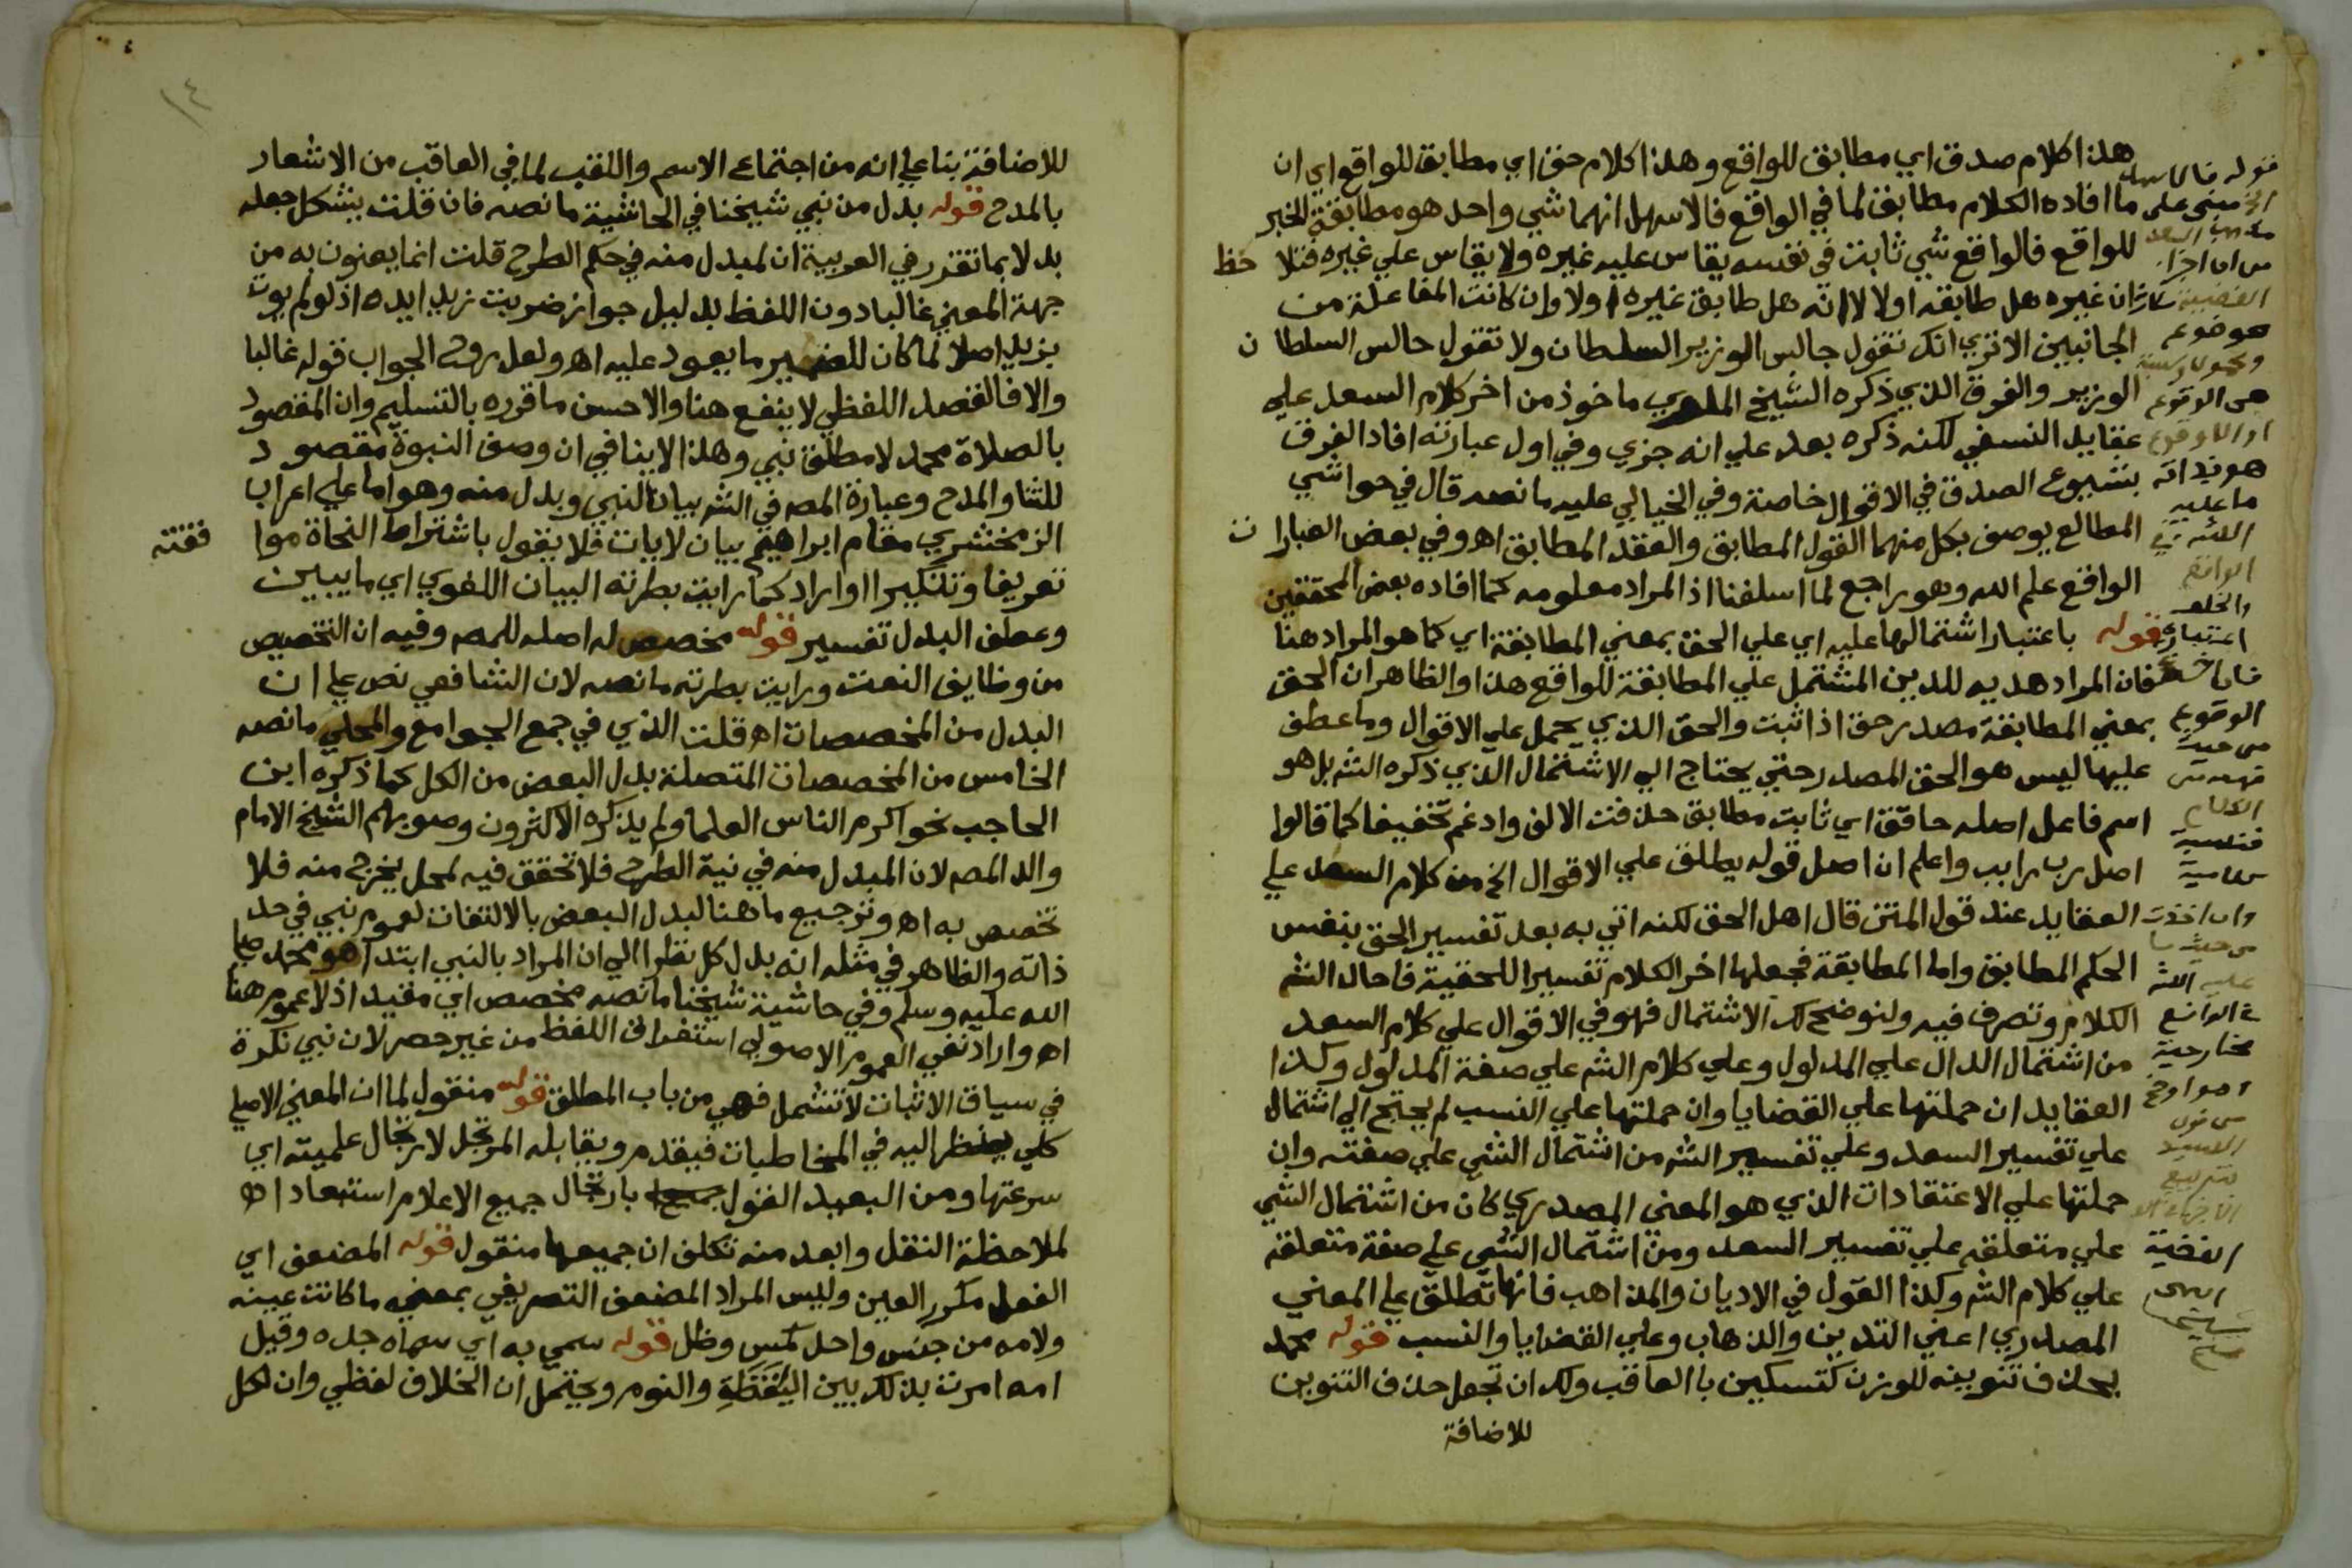 هذا كلام صدق اي مطابق للواقع وهذا كلام حق اي مطابقا للواقع اي ان
ما افاده الكلام مطابق لما في الواقع فالاسهل انهما شي واحد هو مطابقة الخبر
للواقع فالواقع شي ثابت في نفسه يقاس عليه غيره ولا يقاس علي غيره فتلا حظ
ان غيره هل طابقه اولا لا انه هل طابق غيره اولا وان كانت المفاعلة من
الجانبين الا تري انك تقول جالس الوزير السلطان ولا تقول جالس السلطان
الوزير والفرق الذي ذكره الشيخ الملوي ماخوذ من اخر كلام السعد علي
عقايد النسفي لكنه ذكره بعد علي انه جزي وفي اول عبارته افاد الفرق
بشيوع الصدق في الاقوال خاصة وفي الخيالي عليه ما نصه قال في حواشي
المطالع يوصف بكل منهما القول المطابق والعقد المطابق اهـ وفي بعض العبارات
الواقع علم الله وهو راجع لما اسلفنا اذ المراد معلومه كما افاده بعض المحققين
قوله باعتبار اشتمالها عليه اي علي الحق بمعني المطابقة اي كما هو المراد هنا
فان المراد هديه للدين المشتمل علي المطابقة للواقع هذا والظاهر ان الحق
بمعني المطابقة مصدر حق اذا ثبت والحق الذي يحمل علي الاقوال وما عطف
عليها ليس هو الحق المصدر حتي يحتاج الي الاشتمال الذي ذكره الشم بل هو
اسم فاعل اصله حاقق اي ثابت مطابق حذفت الالف وادغم تخفيفا كما قالوا
اصل رب رابب واعلم ان اصل قوله يطلق علي الاقوال الخ من كلام السعد علي
العقايد عند قول المتن قال اهل الحق لكنه اتي به بعد تفسير الحق بنفس
الحكم المطابق واما المطابقة فجعلها اخر الكلام تفسيرا للحقية فاحال الشم
الكلام وتصرف فيه ولنوضح لك الاشتمال فهو في الاقوال علي كلام السعد
من اشتمال الدال علي المدلول وعلي كلام الشم علي صفة المدلول وكذا
العقايد ان حملتها علي القضايا وان حملتها علي النسب لم يحتج الي اشتمال
علي تفسير السعد وعلي تفسير الشم من اشتمال الشي علي صفته وان
حملتها علي الاعتقادات الذي هو المعني المصدري كان من اشتمال الشي
علي متعلقه علي تفسير السعد ومن اشتمال الشي علي صفة متعلقه
علي كلام الشم وكذا القول في الاديان والمذاهب فانها تطلق علي المعني
المصدري اعني التدين والذهاب وعلي القضايا والنسب قوله محمد
بحذف تنوينه للوزن كتسكين با العاقب ولك ان تجعل حذف التنوين
للاضافة
قوله فالاسهل
الخ مبني علي
من ان اجزاء
القضية
موضوع
ومحمول ونسبة
هي الوقوع
او اللاوقوع
ما عليه
الواقع
الوقوع
من حيث
الكلام
وان اخذت
القضية
انتهي
١٤
للاضافة بنا علي انه من اجتماع الاسم واللقب لما في العاقب من الاشعار
بالمدح قوله بدل من نبي شيخنا في الحاشية ما نصه فان قلت يشكل جعله
بدلا بما تقرر في العربية ان المبدل منه في حكم الطرح قلت انما يعنون به من
جهة المعني غالبا دون اللفظ بدليل جواز ضربت زيدا يده اذ لو لم يوت
بزيد اصلا لما كان للضمير ما يعود عليه اهـ ولعل روح الجواب قوله غالبا
والا فالقصد اللفظي لا ينفع هنا والاحسن ما قرره بالتسليم وان المقصود
بالصلاة محمد لا مطلق نبي وهذا لا ينافي ان وصف النبوة مقصود
للثنا والمدح وعبارة المص في الشم بيان لنبي وبدل منه وهو اما علي اعراب
الزمخشري مقام ابراهيم بيان لايات فلا يقول باشتراط النحاة موافقته
تعريفا وتنكيرا او اراد كما رايت بطرته البيان اللغوي اي ما يبين
وعطف البدل تفسير قوله مخصص له اصله للمص وفيه ان التخصيص
من وظايف النعت ورايت بطرته ما نصه لان الشافعي نص علي ان
البدل من المخصصات اهـ قلت الذي في جمع الجوامع والمحلي ما نصه
الخامس من المخصصات المتصلة بدل البعض من الكل كما ذكره ابن
الحاجب نحو اكرم الناس العلما ولم يذكره الاكثرون وصوبهم الشيخ الامام
والد المص لان المبدل منه في نية الطرح فلا تحقق فيه لمحل يخرج منه فلا
تخصيص به اهـ وترجيع ما هنا لبدل البعض بالالتفات لعموم نبي في حد
ذاته والظاهر في مثله انه بدل كل نظرا الي ان المراد بالنبي ابتدا هو محمد صلي
الله عليه وسلم وفي حاشية شيخنا ما نصه مخصص اي مفيد اذ لا عموم هنا
اهـ واراد نفي العموم الاصولي استغراق اللفظ من غير حصر لان نبي نكرة
في سياق الاثبات لا تشمل فهي من باب المطلق قوله منقول لما ان المعني الاصلي
كلي ينظر اليه في المخاطبات فيقدم ويقابله المرتجل لارتجال علميته اي
سرعتها ومن البعيد القول بارتجال جميع الاعلام استبعادا
لملاحظة النقل وابعد منه تكلف ان جميعها منقول قوله المضعف اي
الفعل مكرر العين وليس المراد المضعف التصريفي بمعني ما كانت عينه
ولامه من جنس واحد كمس وظل قوله سمي به اي سماه جده وقيل
امه امرت بذلك بين اليقظة والنوم ويحتمل ان الخلاف لفظي وان لكل